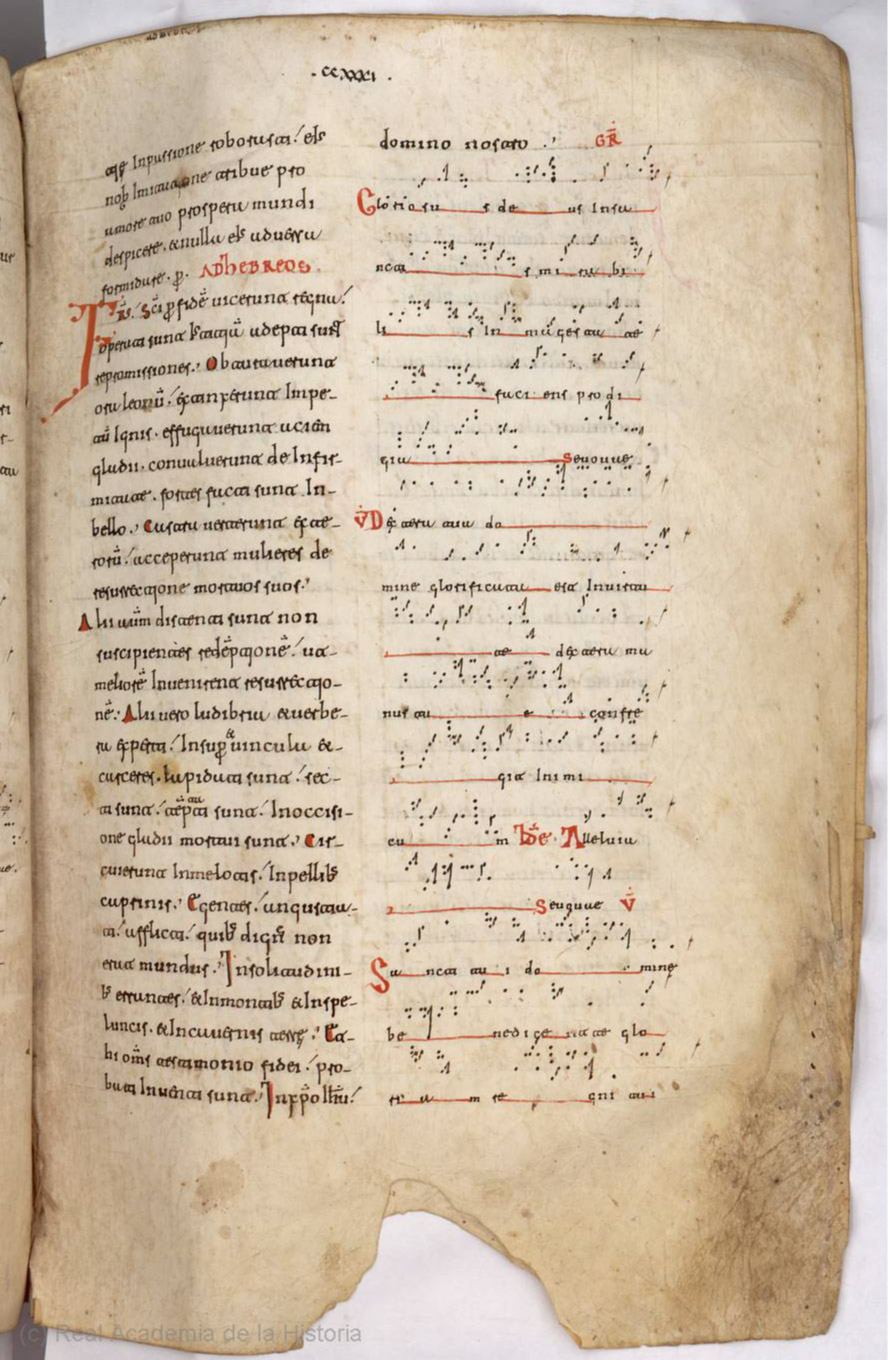 .ccxxxi.
atq; In passione roborasti els
nob Imitatione tribue pro
amore tuo prospera mundi
despicere. & nulla els aduersa
formidare. p. AD HEBREOS
Frs. Sci p fidē uicerunt regna
operati sunt adepti sunt
repromissiones. Obturauerunt
ora leonū. extinxerunt Impe-
tū Ignis. effugauerunt aciem
gladii. conualuerunt de Infir-
mitate. fortes facti sunt In-
bello. Castra uerterunt exte-
rorū. acceperunt mulieres de
resurrectione mortuos suos.
Alii autm distenti sunt non
suscipientes redēptionē. ut
meliorē Inuenirent resurrectio-
nē. Alii uero ludibria & uerbe-
ra experti. Insup & uincula &
carceres. lapidati sunt. sec-
ti sunt. tēptati sunt. In occisi-
one gladii mortui sunt. Cir-
cuierunt In melotis. In pellib
caprinis. Egentes. angustia-
ti. afflicti. quib dign non
erat mundus. In solitudini-
b errantes. & In montib & In spe-
luncis. & In cauernis terre.
hi oms testimonio fidei. pro-
bati Inuenti sunt. In xpo
domino nostro. GR
Gloriosus deus In sa
nctis mirabi
lis In magestate
faciens prodi
gia Seuouae
V Dextera tua do
mine glorificata est In uirtu
te dextera ma
nus tua confre
git Inimi
cum Alleluia
Seuouae V
Sancti tui domine
benedicent te glo
riam regni tui
(c) Real Academia de la Historia